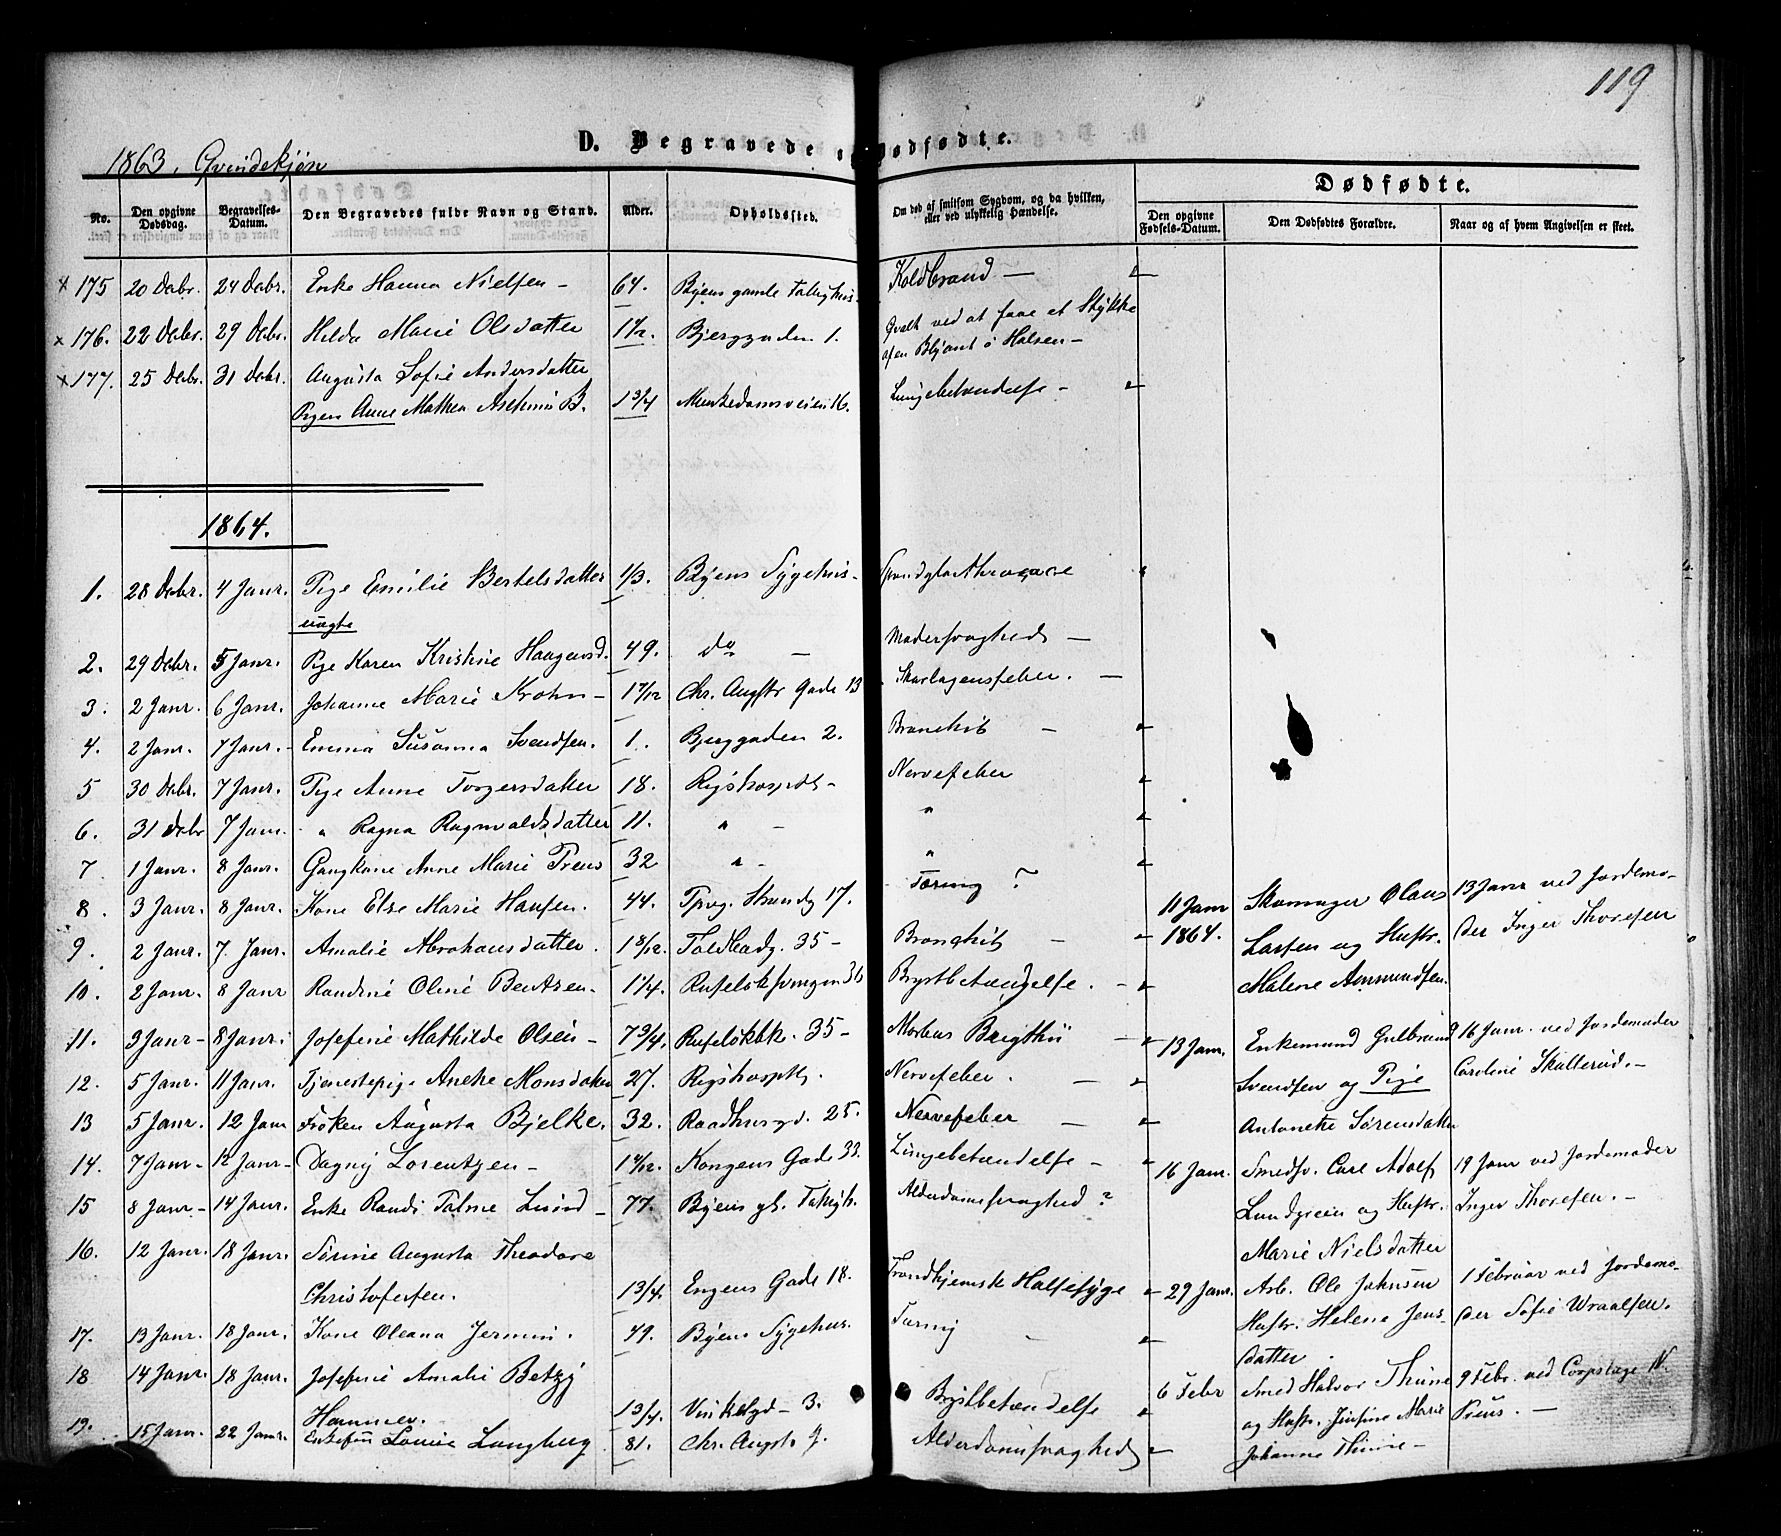 119
D. Begravede og Dødfødte.
1863. Qvindekjøn
Dødfødte.
No. Den opgivne Dødsdag. Begravelses-Datum. Den Begravedes fulde Navn og Stand. Alder. Opholdssted. Om død af smitsom Sygdom, og da hvilken, eller ved ulykkelig Hændelse. Den opgivne Fødsels-Datum. Den Dødfødtes Forældre. Naar og af hvem Angivelsen er skeet.
x 175 20 Debr. 24 Debr. Enke Hanna Nielsen - 64. Byens gamle Fattighus. Koldbrand -
x 176. 22 Debr. 29 Debr. Hilda Marie Olsdatter Bjerggaden 1. Qvalt ved at faae et Stykke
afen Blyant i Halsen -
x 177. 25 Debr. 31 Debr. Augusta Sofie Andersdatter
Pigen Anne Mathea B. 1 3/4 Munkedamsveien 16. Lungebetændelse -
1864.
1. 28 Debr. 4 Janr. Pige Emilie Bertelsdatter 1/3. Byens Sygehus -
uægte
2. 29 Debr. 5 Janr. Pige Karen Kristine Haagensd. 49. do - Modersvaghed -
3. 2 Janr. 6 Janr. Johanne Marie Krohn - 1 7/12 Chr. Augsts Gade 13 Skarlagensfeber. -
4. 2 Janr. 7 Janr. - Emma Susanna Svendsen. 1. Bjerggaden 2. Bronchit -
5 30 Debr. 7 Janr. Pige Anne Torgersdatter 18. Rigshospit. - Nervefeber
6. 31 Debr 7 Janr. " Ragna Ragnvaldsdatter 11. " - "
7 1 Janr. 8 Janr. Gangkone Anne Marie Preus 32 " - "
8. 3 Janr. 8 Janr. Kone Else Marie Hansen. 44. Tpvg. Strandg 17. Tæring ?
9. 2 Janr. 7. Janr. Amalie Abrahamsdatter. 1 8/12. Toldbodg. 35 - Bronchit -
10. 2 Janr. 8 Janr Randine Oline Bentzen. 1 1/4. Ruseløksvingen 36 Brystbetændelse. -
11. 3 Janr - 8 Janr. Josefine Mathilde Olsen - 7 3/4. Ruseløkbk. 35 - Morbus Brigthii
12. 5 Janr. 11 Janr. Tjenestepige Anethe Monsdatter 27. Rigshospit. Nervefeber. -
13 5 Janr. 12 Janr Frøken Augusta Bjelke. 32. Raadhusgd. 25. Nervefeber -
14. 7 Janr - 12 Janr - Dagny Lorentzen - Kongens Gade 33. Lungebetændelse -
15 8 Janr - 14 Janr. Enke Randi Talme Lund - 77. Byens gl. Fattigh. Alderdomssvaghed ?
16. 12 Janr. 18 Janr. Sørine Augusta Theodore
Christofersen. 1 3/4. Engens Gade 18. Trondhjemsk Halsesyge
17. 13 Janr. 18 Janr. Kone Oleana Jermin. 49. Byens Sygehus. Tæring -
18 14 Janr. 18 Janr. Josefine Amalie Betzy
Hammer. 1 3/4. Vinkelgd - 3. Brystbetændelse
19. 15 Janr. 22 Janr. Enkefru Lovise Langberg 81. Chr. Augsts g. Alderdomssvaghed
11 Janr Skomager Olaus 13 Janr ved Jordemo-
1864. Larsen og Hustr. der Inger Thoresen
Malene Aamundsen.
13 Janr. Enkemand Gulbrand 16 Janr. ved Jordemoder
Svendsen og Pige Caroline Skullerud. -
Antonette Sørensdatter
16 Janr. Smedsv. Carl Adolf 19 Janr ved Jordemoder
Lundgreen og Hustr. Inger Thoresen. -
Marie Nielsdatter
29 Janr. Arb. Ole Johnsen 1 Februar ved Jordemo-
Hustr. Helene Jens- der Sofie Wraalsen.
datter.
6 Febr Smed Halvor Thune 9 Febr. ved Corpslæge N.
og Hustr. Jensine Marie Preus. -
Johanne Thune -